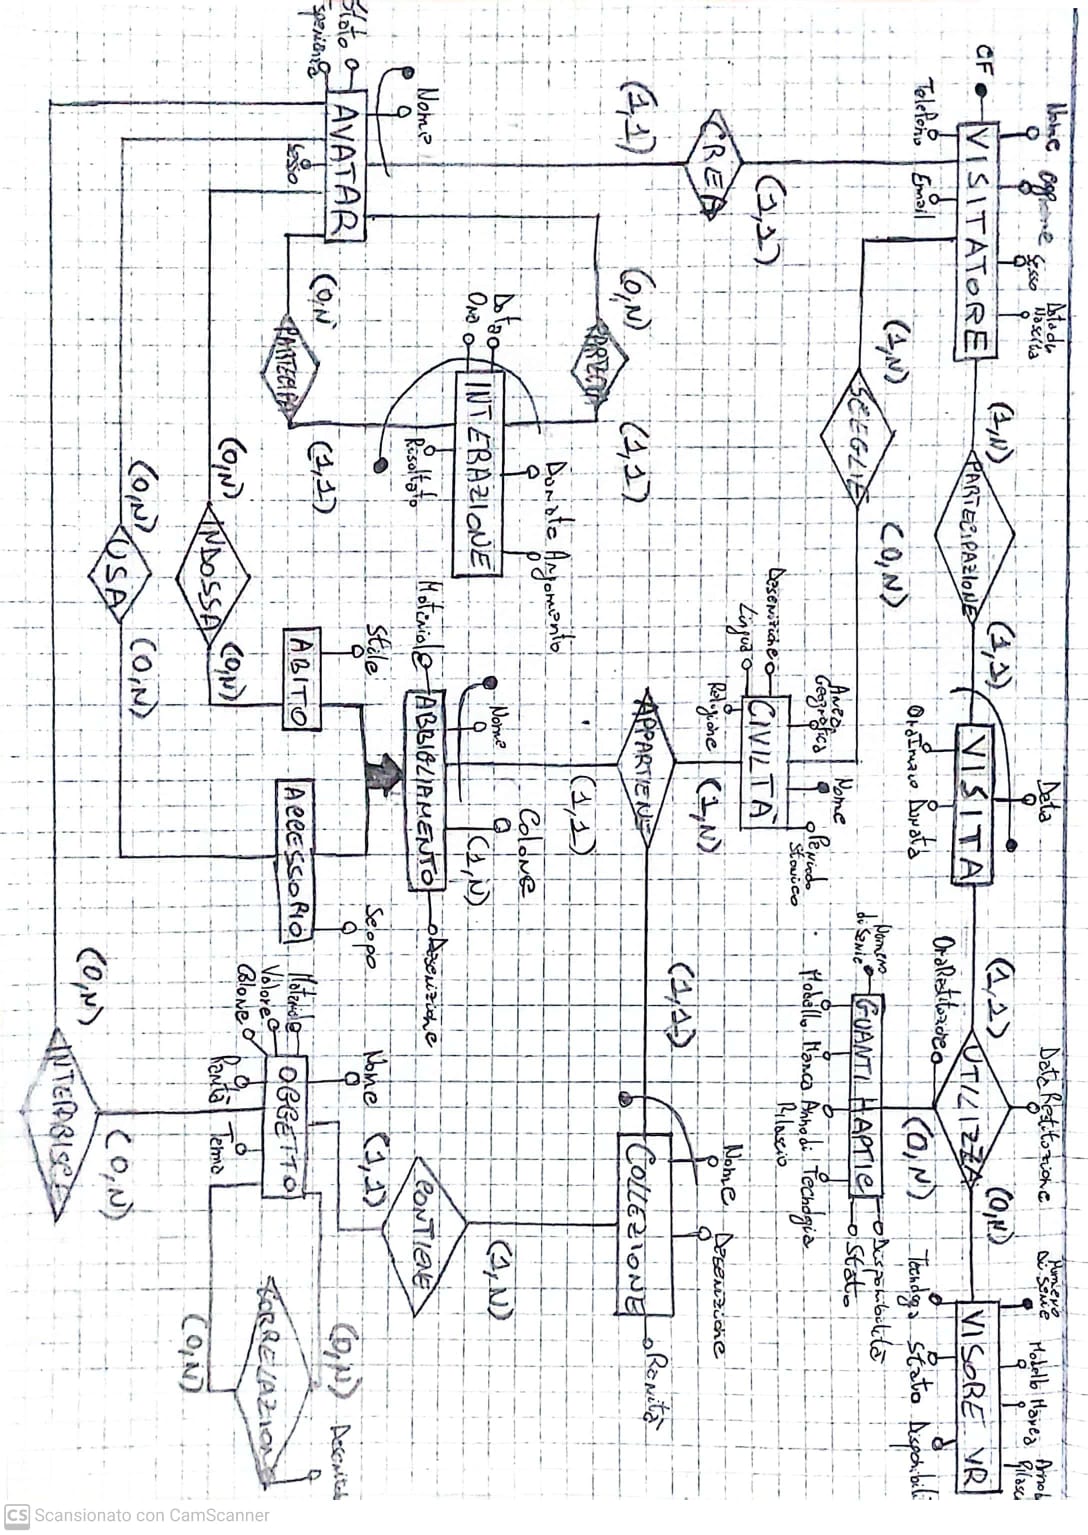 Nome
Cognome
Sesso
Data di
Nascita
CF
VISITATORE
Telefono
Email
(1,N)
PARTECIPAZIONE
(1,1)
Data
VISITA
OraInizio
Durata
(1,1)
Data Restituzione
UTILIZZA
OraRestituzione
(0,N)
(0,N)
Numero
Di Serie
Modello
Marca
Anno
Rilascio
VISORE VR
Tecnologia
Stato
Disponibili
(1,N)
SCEGLIE
(0,N)
Numero
di Serie
GUANTI HAPTIC
Disponibilità
Stato
Modello
Marca
Anno di
Rilascio
Tecnologia
Area
Geografica
Nome
Periodo
Storico
Descrizione
CIVILTÀ
Lingua
Religione
(1,1)
CREA
(1,1)
(1,N)
APPARTIENE
(1,1)
(1,1)
Nome
Descrizione
COLLEZIONE
Rarità
(0,N)
(1,1)
Data
Ora
Durata
Argomento
INTERAZIONE
Risultato
Colore
Nome
(1,N)
Materiale
ABBIGLIAMENTO
Descrizione
(1,N)
CONTIENE
(1,1)
Nome
Stato
AVATAR
Esperienza
Sesso
(0,N
PARTECIPA
(1,1)
Stile
ABITO
Scopo
ACCESSORIO
Nome
Materiale
OGGETTO
Valore
Colore
Rarità
Tema
(0,N)
CORRELAZIONE
(0,N)
(0,N)
INDOSSA
(0,N)
(0,N)
USA
(0,N)
(0,N)
(0,N)
INTERAGISCE
CS Scansionato con CamScanner